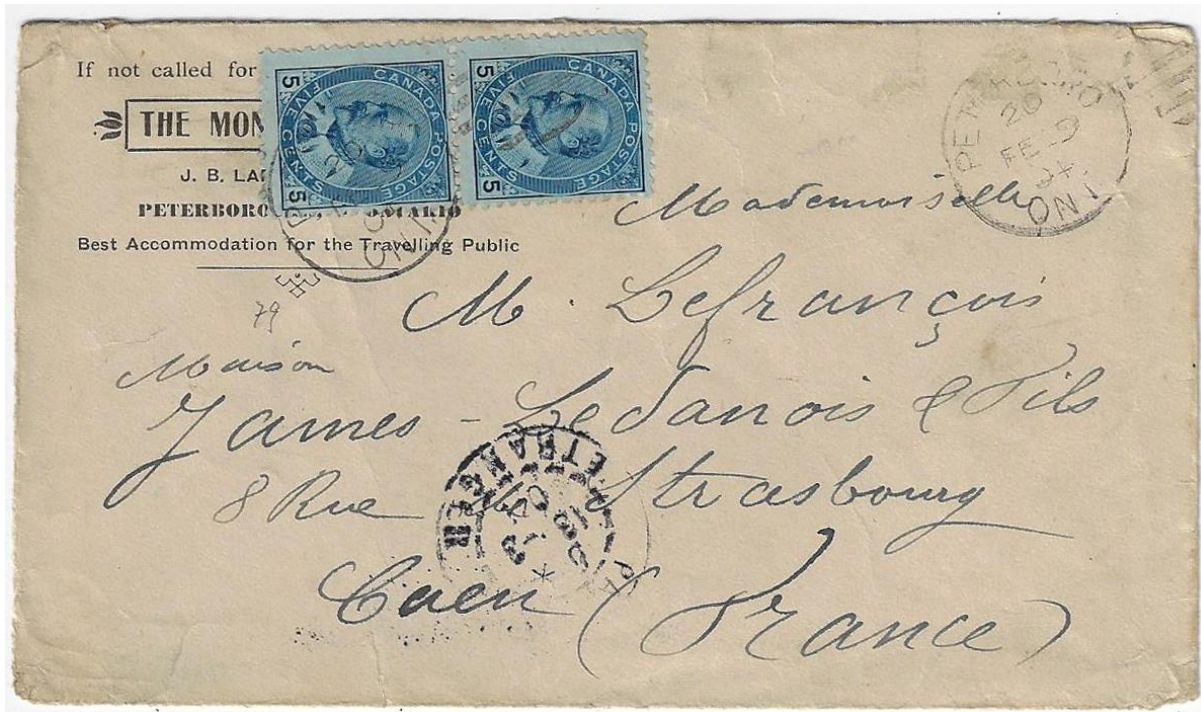 If not called for
THE MON
J. B. LA
PETERBORO ONTARIO
Best Accommodation for the Travelling Public
CANADA POSTAGE
5 FIVE CENTS 5
CANADA POSTAGE
5 FIVE CENTS 5
ONT
PETERBORO
20
FE 9
04
ONT
79
Mademoiselle
M. Lefrançois
Maison
James - Ledanois & Fils
8 Rue de Strasbourg
Caen (France)
ETRANGER